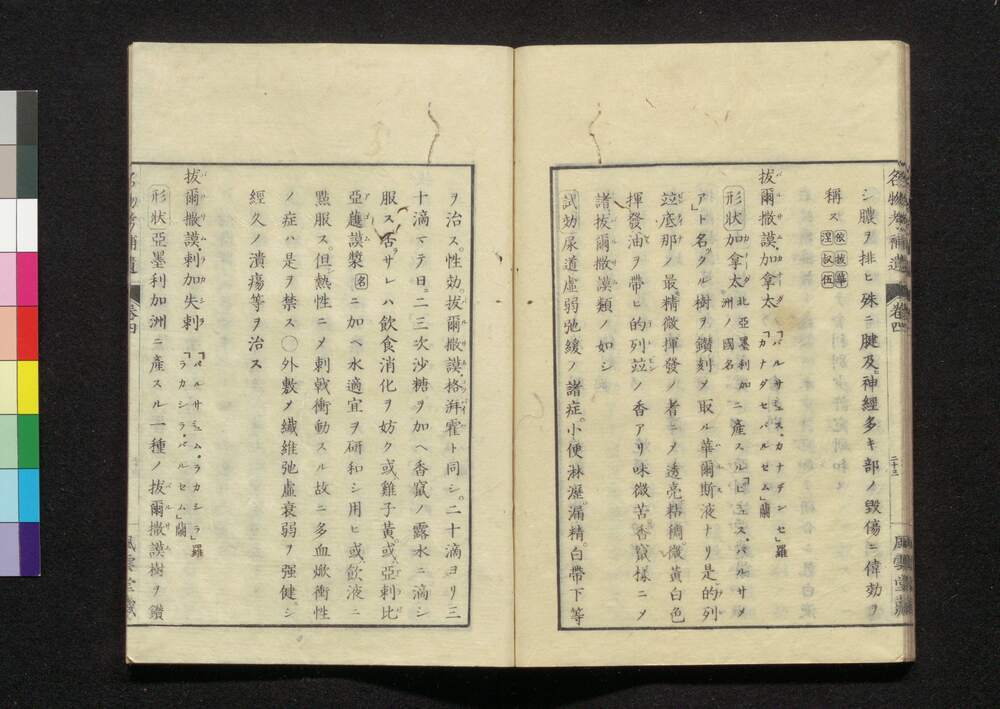 名物考補遺 卷四 二十二 風雲堂藏
シ膿ヲ排ヒ殊ニ腱及ヒ神經多キ部ノ毀傷ニ偉効ヲ
稱ス 依拔篳 涅叔伍
拔爾撒謨・加拿太 「バルサミュス・カナデンセ」羅 「カナダセバルセム」蘭
形狀 加拿太 北亞墨利加洲ノ國名 ニ產スル「ピニュス・バルサメ
ア」ト名クル樹ヲ鑽刻乄取ル華爾斯液ナリ是的列
竝底那ノ最精微揮發ノ者ニ乄透亮粘稠微黃白色
揮發油ヲ帶ヒ的列竝ノ香アリ味微苦香竄樣ニ乄
諸拔爾撒謨類ノ如シ
試効 尿道虛弱弛緩ノ諸症。小便淋瀝。漏精。白帶下等
ヲ治ス。性効。拔爾撒謨・格湃霍ト同シ。二十滴ヨリ三
十滴マテ日。二三次沙糖ヲ加ヘ香竄ノ露水ニ滴シ
服ス否サレハ飮食消化ヲ妨ク或雞子黃。或亞剌比
亞護謨漿 名 ニ加ヘ水適宜ヲ研和シ用ヒ或飮液ニ
㸃服ス。但熱性ニ乄刺戟衝動スル故ニ多血焮衝性
ノ症ハ是ヲ禁ス〇外敷乄纎維弛虛衰弱ヲ强健シ。
經久ノ潰瘍等ヲ治ス
拔爾撒謨・剌加失剌 「バルサミュム・ラカシラ」羅 「ラカシラ・バルセム」蘭
形狀 亞墨利加洲ニ產スル一種ノ拔爾撒謨樹ヲ鑽
名物考補遺 卷四 風雲堂藏